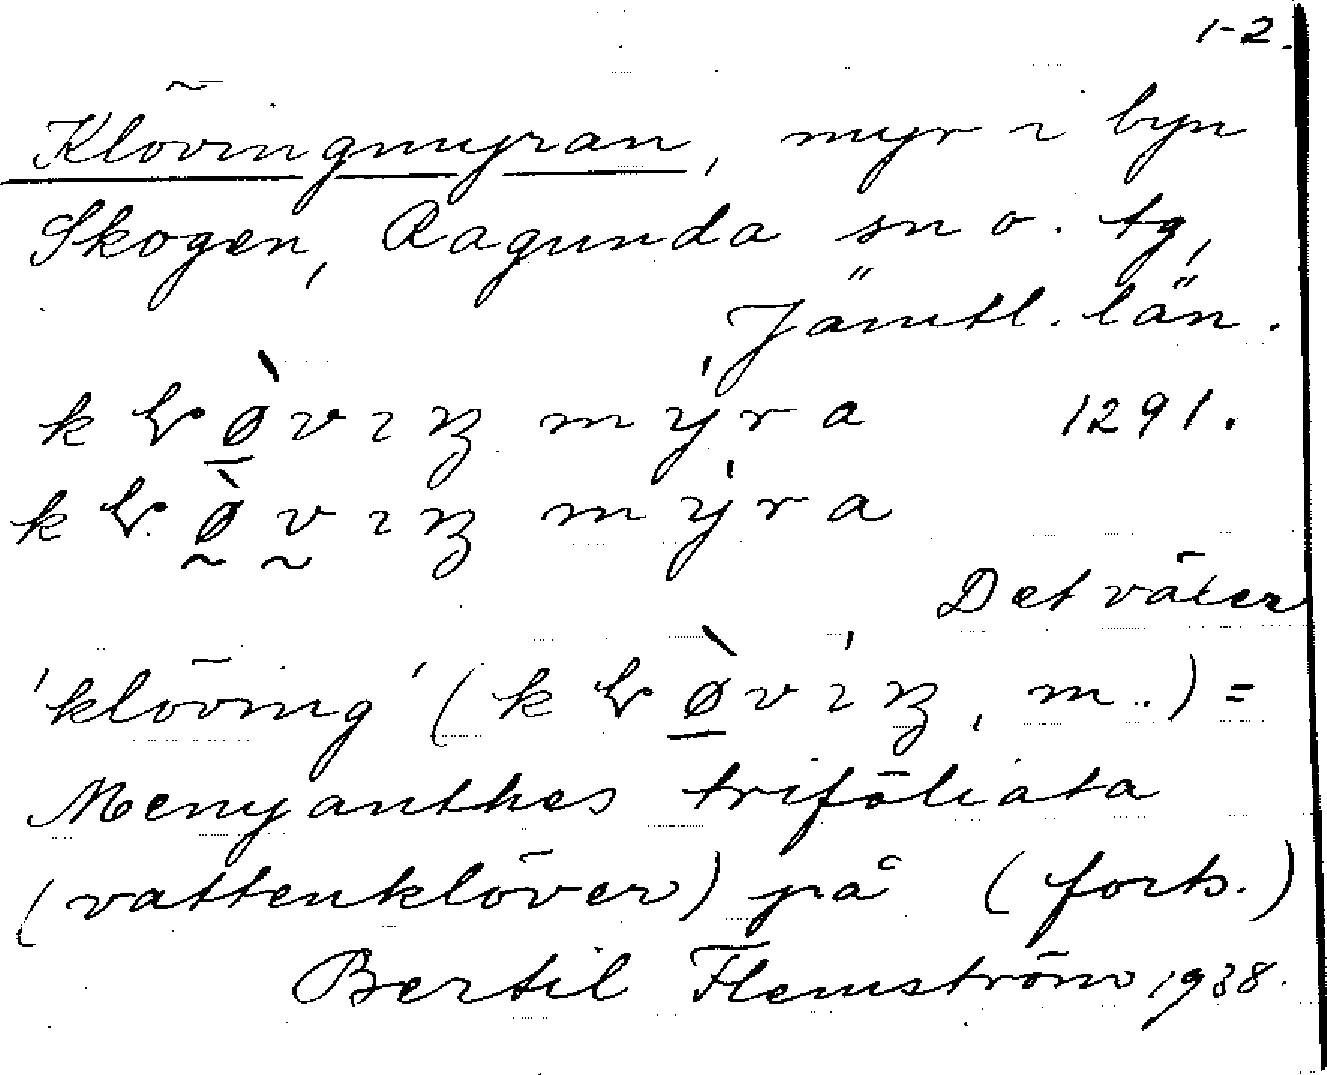 1-2.
Klövingmyran, myr i byn
Skogen, Ragunda sn o. tg,
Jämtl. län.
1291.
Det växer
'klöving' ( , m..) =
Menyanthes trifoliata
(vattenklöver) på (forts.)
Bertil Flemström 1938.